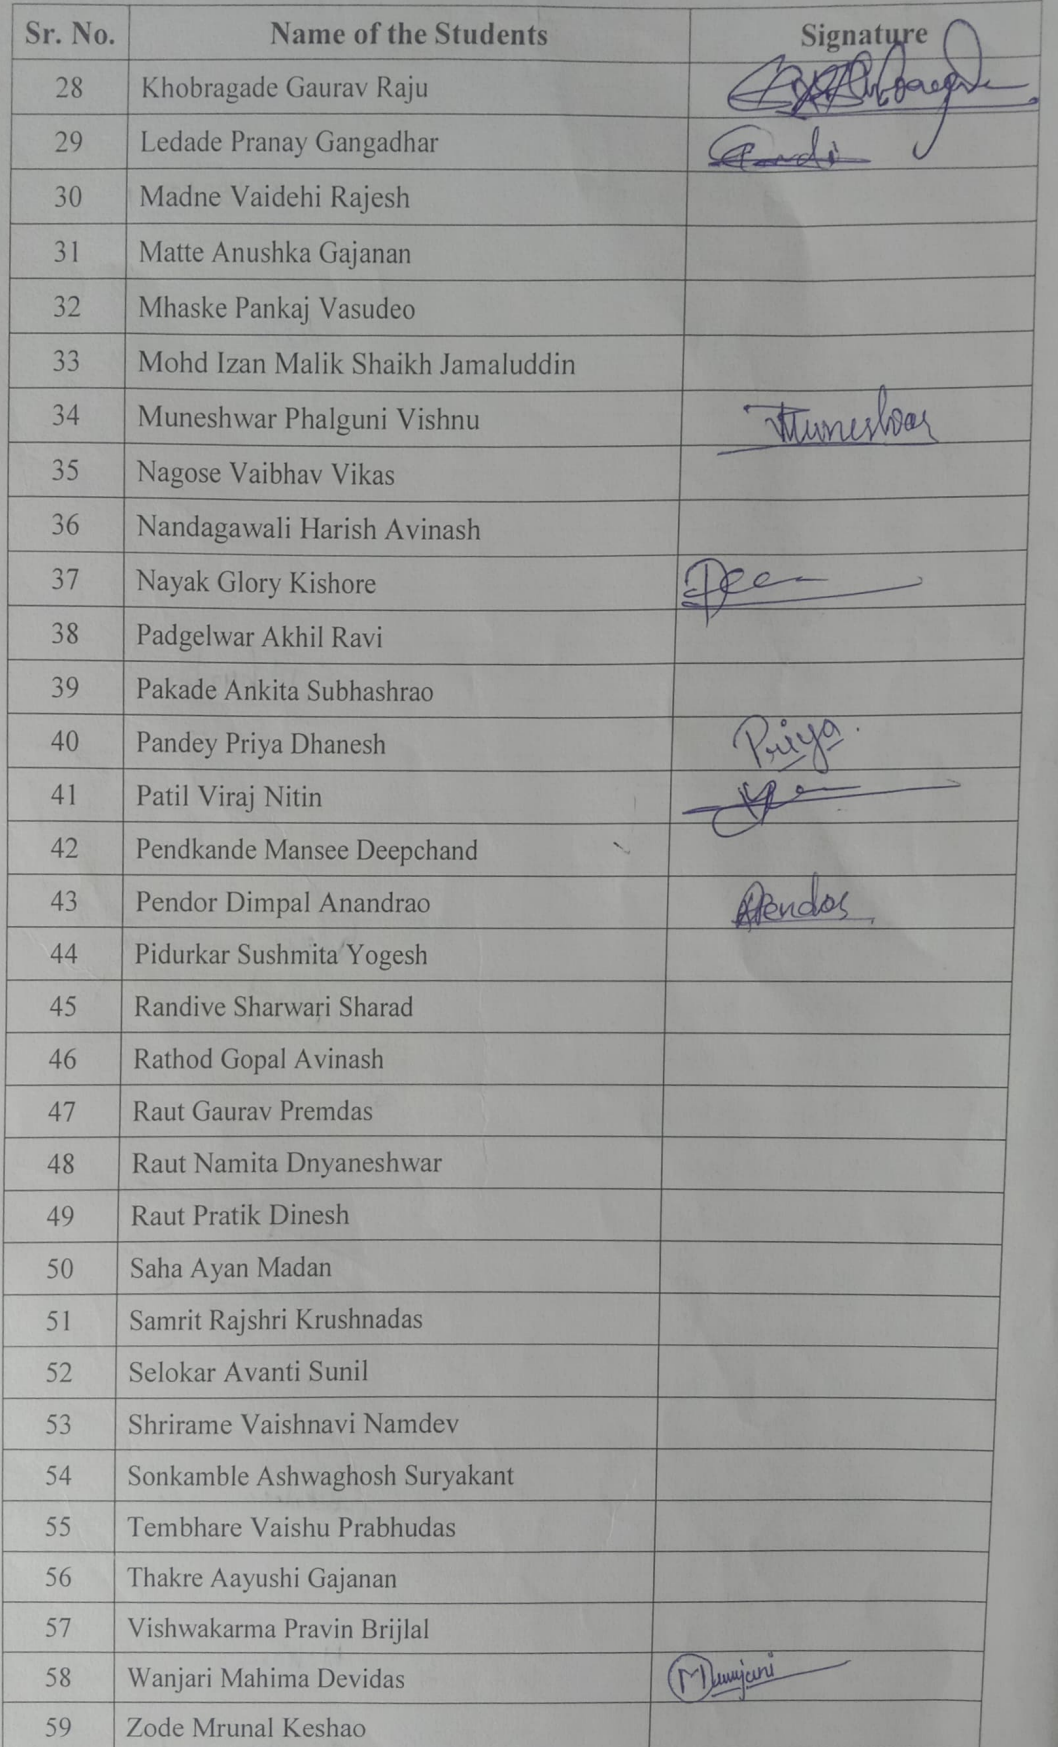 Sr. No. Name of the Students Signature
28 Khobragade Gaurav Raju
29 Ledade Pranay Gangadhar
30 Madne Vaidehi Rajesh
31 Matte Anushka Gajanan
32 Mhaske Pankaj Vasudeo
33 Mohd Izan Malik Shaikh Jamaluddin
34 Muneshwar Phalguni Vishnu
35 Nagose Vaibhav Vikas
36 Nandagawali Harish Avinash
37 Nayak Glory Kishore
38 Padgelwar Akhil Ravi
39 Pakade Ankita Subhashrao
40 Pandey Priya Dhanesh Priya
41 Patil Viraj Nitin
42 Pendkande Mansee Deepchand
43 Pendor Dimpal Anandrao
44 Pidurkar Sushmita Yogesh
45 Randive Sharwari Sharad
46 Rathod Gopal Avinash
47 Raut Gaurav Premdas
48 Raut Namita Dnyaneshwar
49 Raut Pratik Dinesh
50 Saha Ayan Madan
51 Samrit Rajshri Krushnadas
52 Selokar Avanti Sunil
53 Shrirame Vaishnavi Namdev
54 Sonkamble Ashwaghosh Suryakant
55 Tembhare Vaishu Prabhudas
56 Thakre Aayushi Gajanan
57 Vishwakarma Pravin Brijlal
58 Wanjari Mahima Devidas
59 Zode Mrunal Keshao